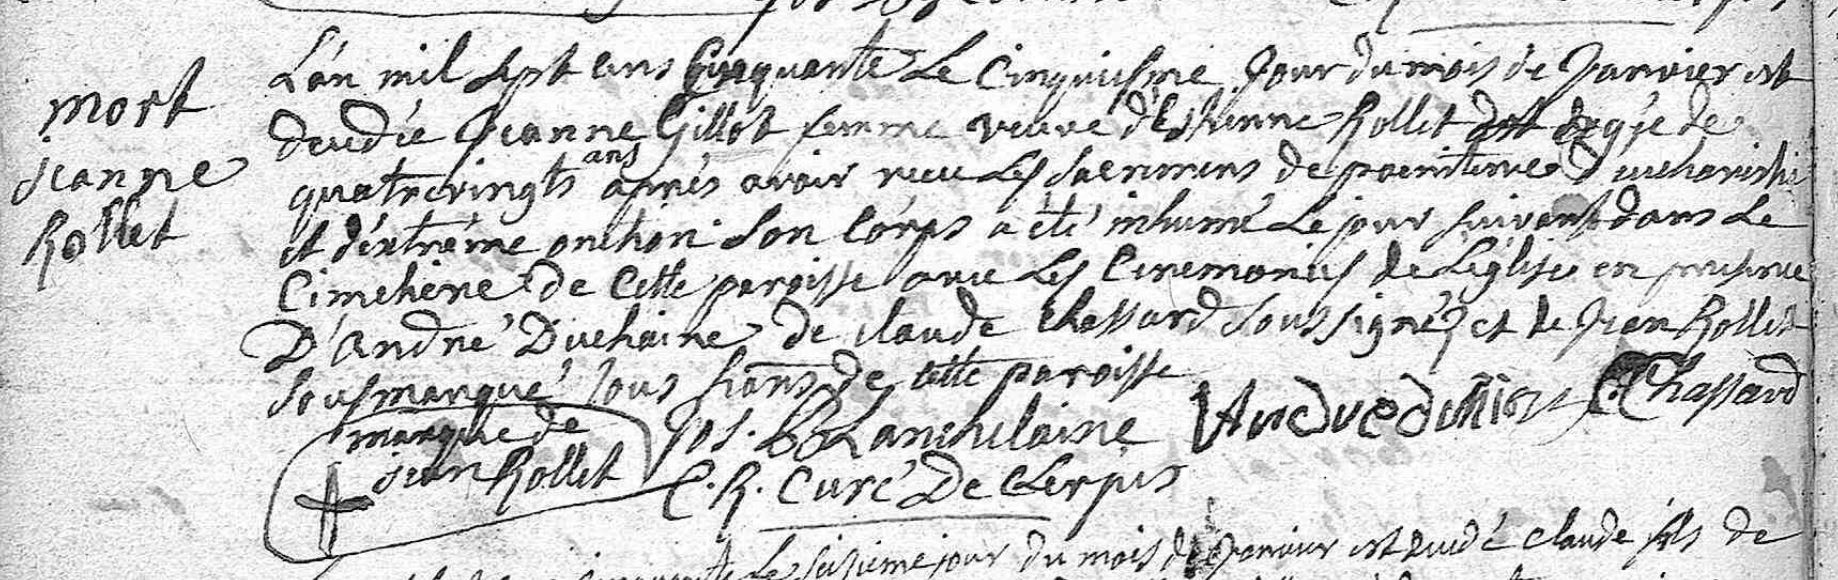 mort
jeanne
Rollet
L'an mil sept cens Cinquante Le Cinquiesme Jour du mois de Janvier est
decedée Jeanne Gillot femme veuve d'Estienne Rollet agée de
quatrevingts ans aprés avoir receu Les sacremens de poenitence d'eucharistie
et d'éxtréme onction Son Corps a eté inhumé Le jour suivant dans Le
Cimetiére de Cette paroisse avec Les Ceremonies de L'église en presence
D'andré Duchaine de claude chassard Soussignéz et de Jean Rollet
Sousmarqué tous de cette paroisse
marque de
jean Rollet
Jos.
C. R. Curé De Clerpis
C. Chassard
Le sixieme jour du mois de Janvier est decedé claude fils de